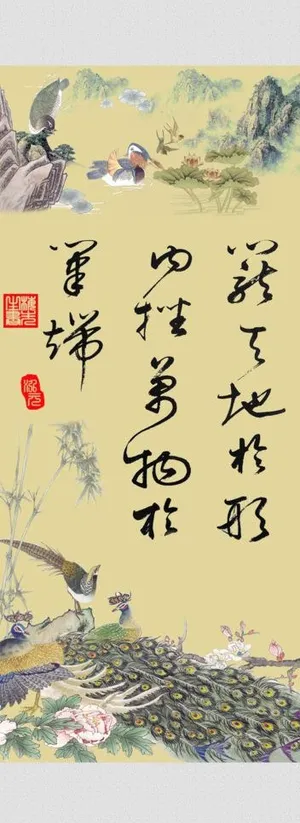 籠天地於形
内挫萬物於
筆端